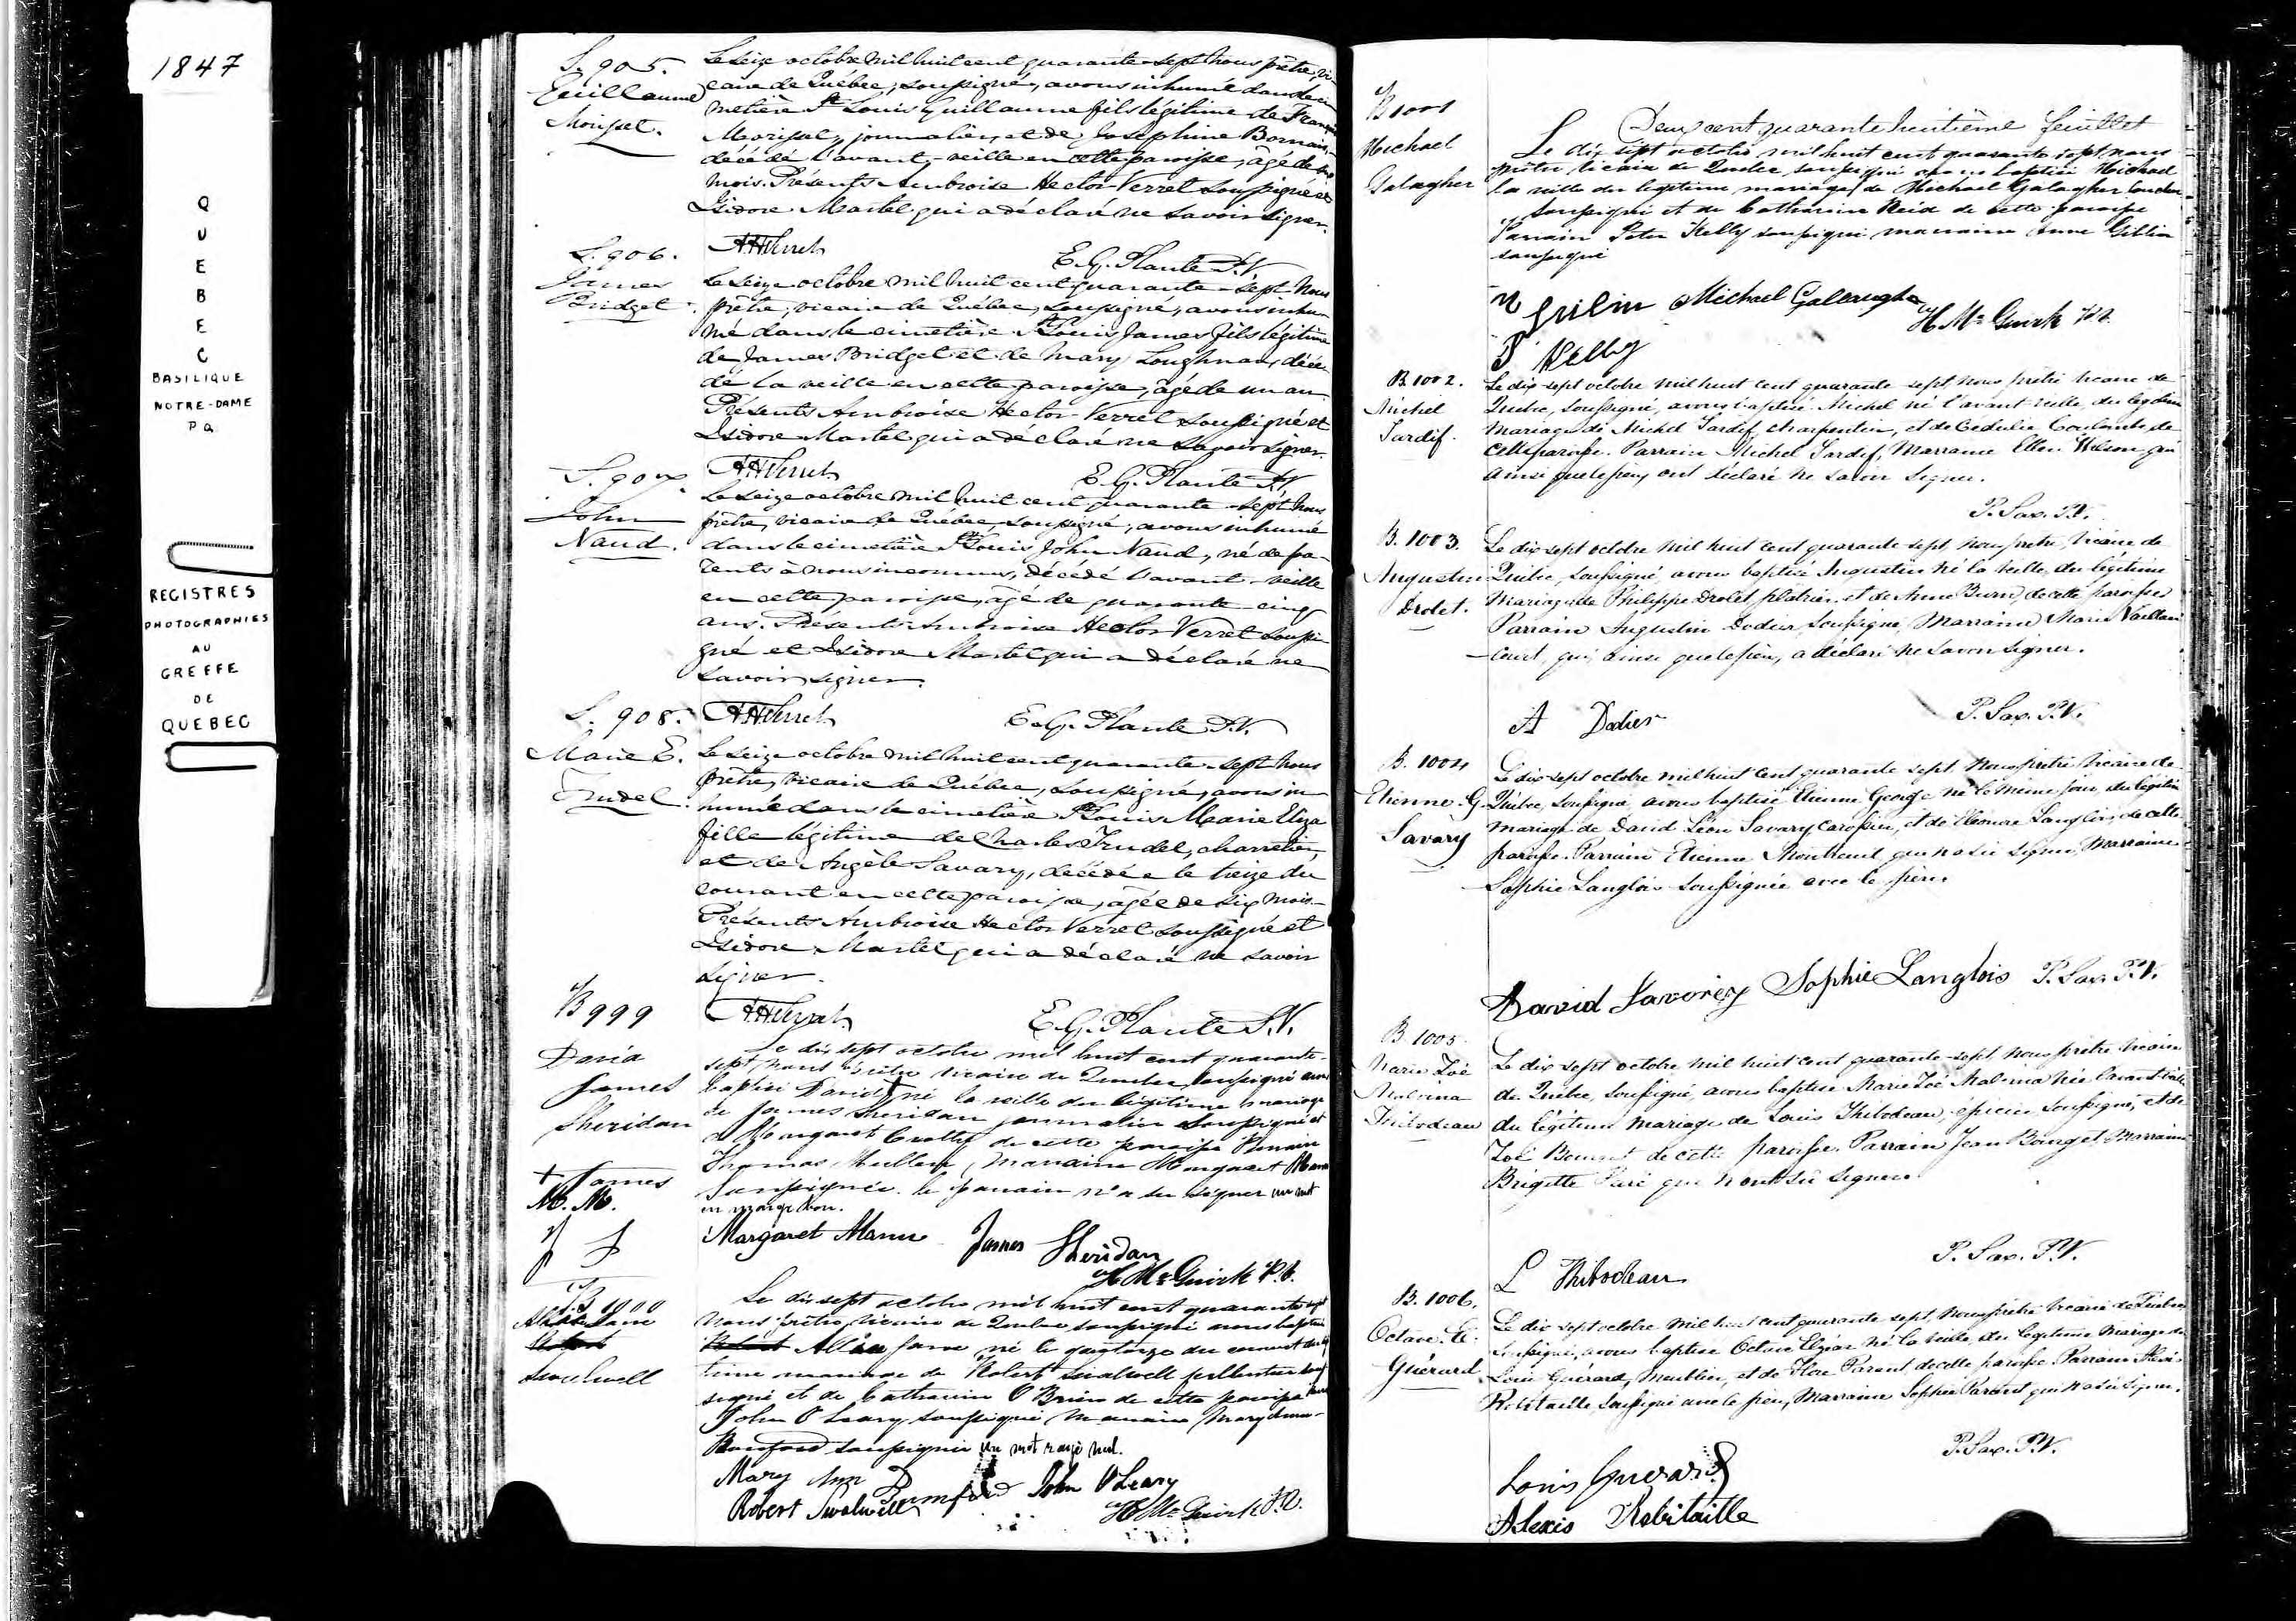 1847
QUEBEC
BASILIQUE
NOTRE-DAME
PQ
REGISTRES
PHOTOGRAPHIES
AU
GREFFE
DE
QUEBEC
S. 905.
Guillaume
Morisset.
Le seize octobre mil huit cent quarante-sept Nous prêtre, vi-
caire de Québec, soussigné, avons inhumé dans le ci-
metière St Louis Guillaume fils légitime de François
Morisset, journalier, et de Josephine Bonnais,
décédé l'avant-veille en cette paroisse, âgé de
mois. Présents Ambroise Hector Verret soussigné et
Isidore Martel qui a déclaré ne savoir signer.
AHVerret
E. G. Plante P.V.
S. 906.
James
Bridget.
Le seize octobre mil huit cent quarante-sept Nous
prêtre, vicaire de Québec, soussigné, avons inhu-
mé dans le cimetière St Louis James fils légitime
de James Bridget et de Mary Loughnan, décé-
dé la veille en cette paroisse, âgé de un an
Présents Ambroise Hector Verret soussigné et
Isidore Martel qui a déclaré ne savoir signer.
AHVerret
E. G. Plante P.V.
S. 907.
John
Naud.
Le seize octobre mil huit cent quarante-sept Nous
prêtre, vicaire de Québec, soussigné, avons inhumé
dans le cimetière St Louis John Naud, né de pa-
rents à nous inconnus, décédé l'avant-veille
en cette paroisse, âgé de quarante cinq
ans. Présents Ambroise Hector Verret soussi-
gné et Isidore Martel qui a déclaré ne
savoir signer.
AHVerret
E. G. Plante P.V.
S. 908.
Marie E.
Trudel.
Le seize octobre mil huit cent quarante-sept Nous
prêtre, vicaire de Québec, soussigné, avons in-
humé dans le cimetière St Louis Marie Eliza
fille légitime de Charles Trudel, charretier,
et de Angèle Savary, décédée le treize du
courant en cette paroisse, âgée de six mois.
Présents Ambroise Hector Verret soussigné et
Isidore Martel qui a déclaré ne savoir
signer.
AHVerret
E. G. Plante P.V.
B 999
David
James
Sheridan
Le dix sept octobre mil huit cent quarante-
sept, nous prêtre vicaire de Quebec soussigné avons
baptisé David + né la veille du légitime mariage
de James Sheridan journalier soussigné et
de Margaret Crotty de cette paroisse Parrain
Thomas Mullen, marraine Margaret Mann
soussignée. le parrain n'a su signer un mot
en marge bon.
+ James
M. M.
Margaret Mann
James Sheridan
H McGuirk P.V.
B 1000
Jane
Swalwell
Le dix sept octobre mil huit cent quarante sept
nous prêtre vicaire de Quebec soussigné avons baptisé
Jane né le quatorze du courant du légi-
time mariage de Robert Swalwell ferblantier sous-
signé et de Catharine O'Brien de cette paroisse
John O'Leary soussigné marraine Mary Ann
Bamford soussignée un mot rayé nul.
Mary Ann Bamford John O'Leary
Robert Swalwell
H McGuirk P.V.
Deux cent quarante huitième feuillet
B 1001
Michael
Galagher
Le dix sept octobre mil huit cent quarante sept, nous
prêtre vicaire de Quebec soussigné avons baptisé Michael
la veille du légitime mariage de Michael Galagher
soussigné et de Catharine Reid de cette paroisse
Parrain Peter Kelly soussigné marraine Anne Giblin
soussigné
Michael Gallaugher
H McGuirk P.V.
P Kelly
B. 1002.
Michel
Tardif.
Le dix-sept octobre mil huit cent quarante-sept, nous prêtre vicaire de
Québec, soussigné, avons baptisé Michel né l'avant veille, du légitime
mariage de Michel Tardif, charpentier, et de Cédulie Coulombe de
cette paroisse. Parrain Michel Tardif, Marraine Ellen Wilson qui
ainsi que le père, ont déclaré ne savoir signer.
P. Sax. P.V.
B. 1003.
Augustin
Drolet.
Le dix-sept octobre mil huit cent quarante-sept, nous prêtre, vicaire de
Québec, soussigné, avons baptisé Augustin né la veille, du légitime
mariage de Philippe Drolet plâtrier, et de Anne Burn, de cette paroisse
Parrain Augustin Dodier, soussigné, Marraine Marie Vaillan-
court, qui, ainsi que le père, a déclaré ne savoir signer.
A Dodier
P. Sax. P.V.
B. 1004
Etienne. G.
Savary
Le dix-sept octobre mil huit cent quarante sept Nous prêtre vicaire de
Québec, soussigné, avons baptisé Etienne George né le même jour, du légitime
mariage de David Léon Savary, carossier, et de Eléonore Langlois, de cette
paroisse. Parrain Etienne Montreuil qui n'a su signer, Marraine
Sophie Langlois soussignée avec le père.
David Savorey Sophie Langlois P. Sax. P.V.
B. 1005.
Marie Zoé
Malvina
Thibodeau
Le dix-sept octobre mil huit cent quarante-sept, nous prêtre vicaire
de Québec, soussigné, avons baptisé Marie Zoé Malvina née l'avant-veille
du légitime mariage de Louis Thibodeau, épicier soussigné, et de
Zoé Bourget de cette paroisse. Parrain Jean Bourget Marraine
Brigitte Paré qui n'ont su signer.
L Thibodeau
P. Sax. P.V.
B. 1006.
Octave. E.
Guérard
Le dix-sept octobre mil huit cent quarante sept, nous prêtre vicaire de Québec
soussigné, avons baptisé Octave Elzéar né la veille, du légitime mariage de
Louis Guérard, meublier, et de Flore Parent, de cette paroisse. Parrain Alexis
Robitaille, soussigné avec le père, Marraine Sophie Parent qui n'a su signer.
P. Sax. P.V.
Louis Guerard
Alexis Robitaille